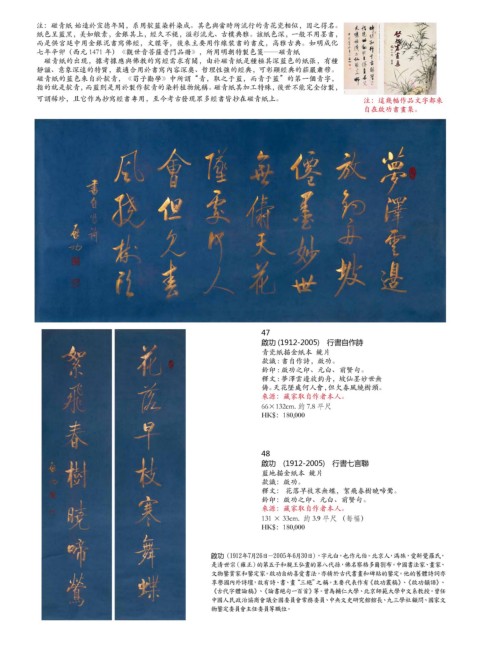 注：磁青紙始造於宣德年間，系用靛藍染料染成。其色與當時所流行的青花瓷相似，因之得名。
紙色呈藍黑，美如緞素，金銀其上，經久不褪，溢彩流光，古樸典雅。該紙色深，一般不用墨書，
而是供宮廷中用金銀泥書寫佛經，文牒等。後來主要用作線裝書的書皮，高雅古典。如明成化
七年辛卯（西元1471年）《觀世音菩薩普門品冊》，所用明朝特製色箋——磁青紙
磁青紙的出現，據考據應與佛教的寫經需求有關，由於磁青紙是種極其深藍色的紙張，有種
靜謐、意象深遠的特質，最適合用於書寫內容深奧、哲理性強的經典，可彰顯經典的莊嚴肅穆。
磁青紙的藍色來自於靛青，《荀子勸學》中所謂“青，取之于藍，而青于藍”的第一個青字，
指的就是靛青，而藍則是用於製作靛青的染料植物統稱。磁青紙其加工特殊，後世不能完全仿製，
可謂稀珍，且它作為抄寫經書專用，至今考古發現眾多經書皆抄在磁青紙上。
注：這幾幅作品文字都來
自啟功書畫集。
夢澤雲邊
放釣舟 坡
僊墨妙世
無儔 天花
墜處何人
會 但見春
風繞樹頭
書自作詩
啟功
47
啟功 (1912-2005)　行書自作詩
青瓷紙描金紙本 鏡片
款識：書自作詩，啟功。
鈐印：啟功之印、元白、前賢句。
釋文：夢澤雲邊放釣舟，坡仙墨妙世無
儔。天花墜處何人會，但欠春風繞樹頭。
來源：藏家取自作者本人。
66×132cm. 約7.8平尺
HK$: 180,000
花落早枝寒舞蝶
絮飛春樹曉啼鶯
啟功
48
啟功　(1912-2005)　行書七言聯
藍地描金紙本 鏡片
款識：啟功。
釋文：花落早枝寒舞蝶，絮飛春樹曉啼鶯。
鈐印：啟功之印、元白、前賢句。
來源：藏家取自作者本人。
131 × 33cm. 約3.9平尺 （每幅）
HK$: 180,000
啟功（1912年7月26日—2005年6月30日），字元白，也作元伯，北京人，滿族，愛新覺羅氏，
是清世宗（雍正）的第五子和親王弘晝的第八代孫，佛名察格多爾劄布。中國書法家、畫家、
文物鑒賞家和鑒定家。啟功自幼喜愛書法，亦精於古代書畫和碑帖的鑒定，他的舊體詩詞亦
享譽國內外詩壇，故有詩、書、畫“三絕”之稱，主要代表作有《啟功叢稿》、《啟功韻語》、
《古代字體論稿》、《論書絕句一百首》等。曾為輔仁大學、北京師範大學中文系教授，曾任
中國人民政治協商會議全國委員會常務委員、中央文史研究館館長、九三學社顧問、國家文
物鑒定委員會主任委員等職位。